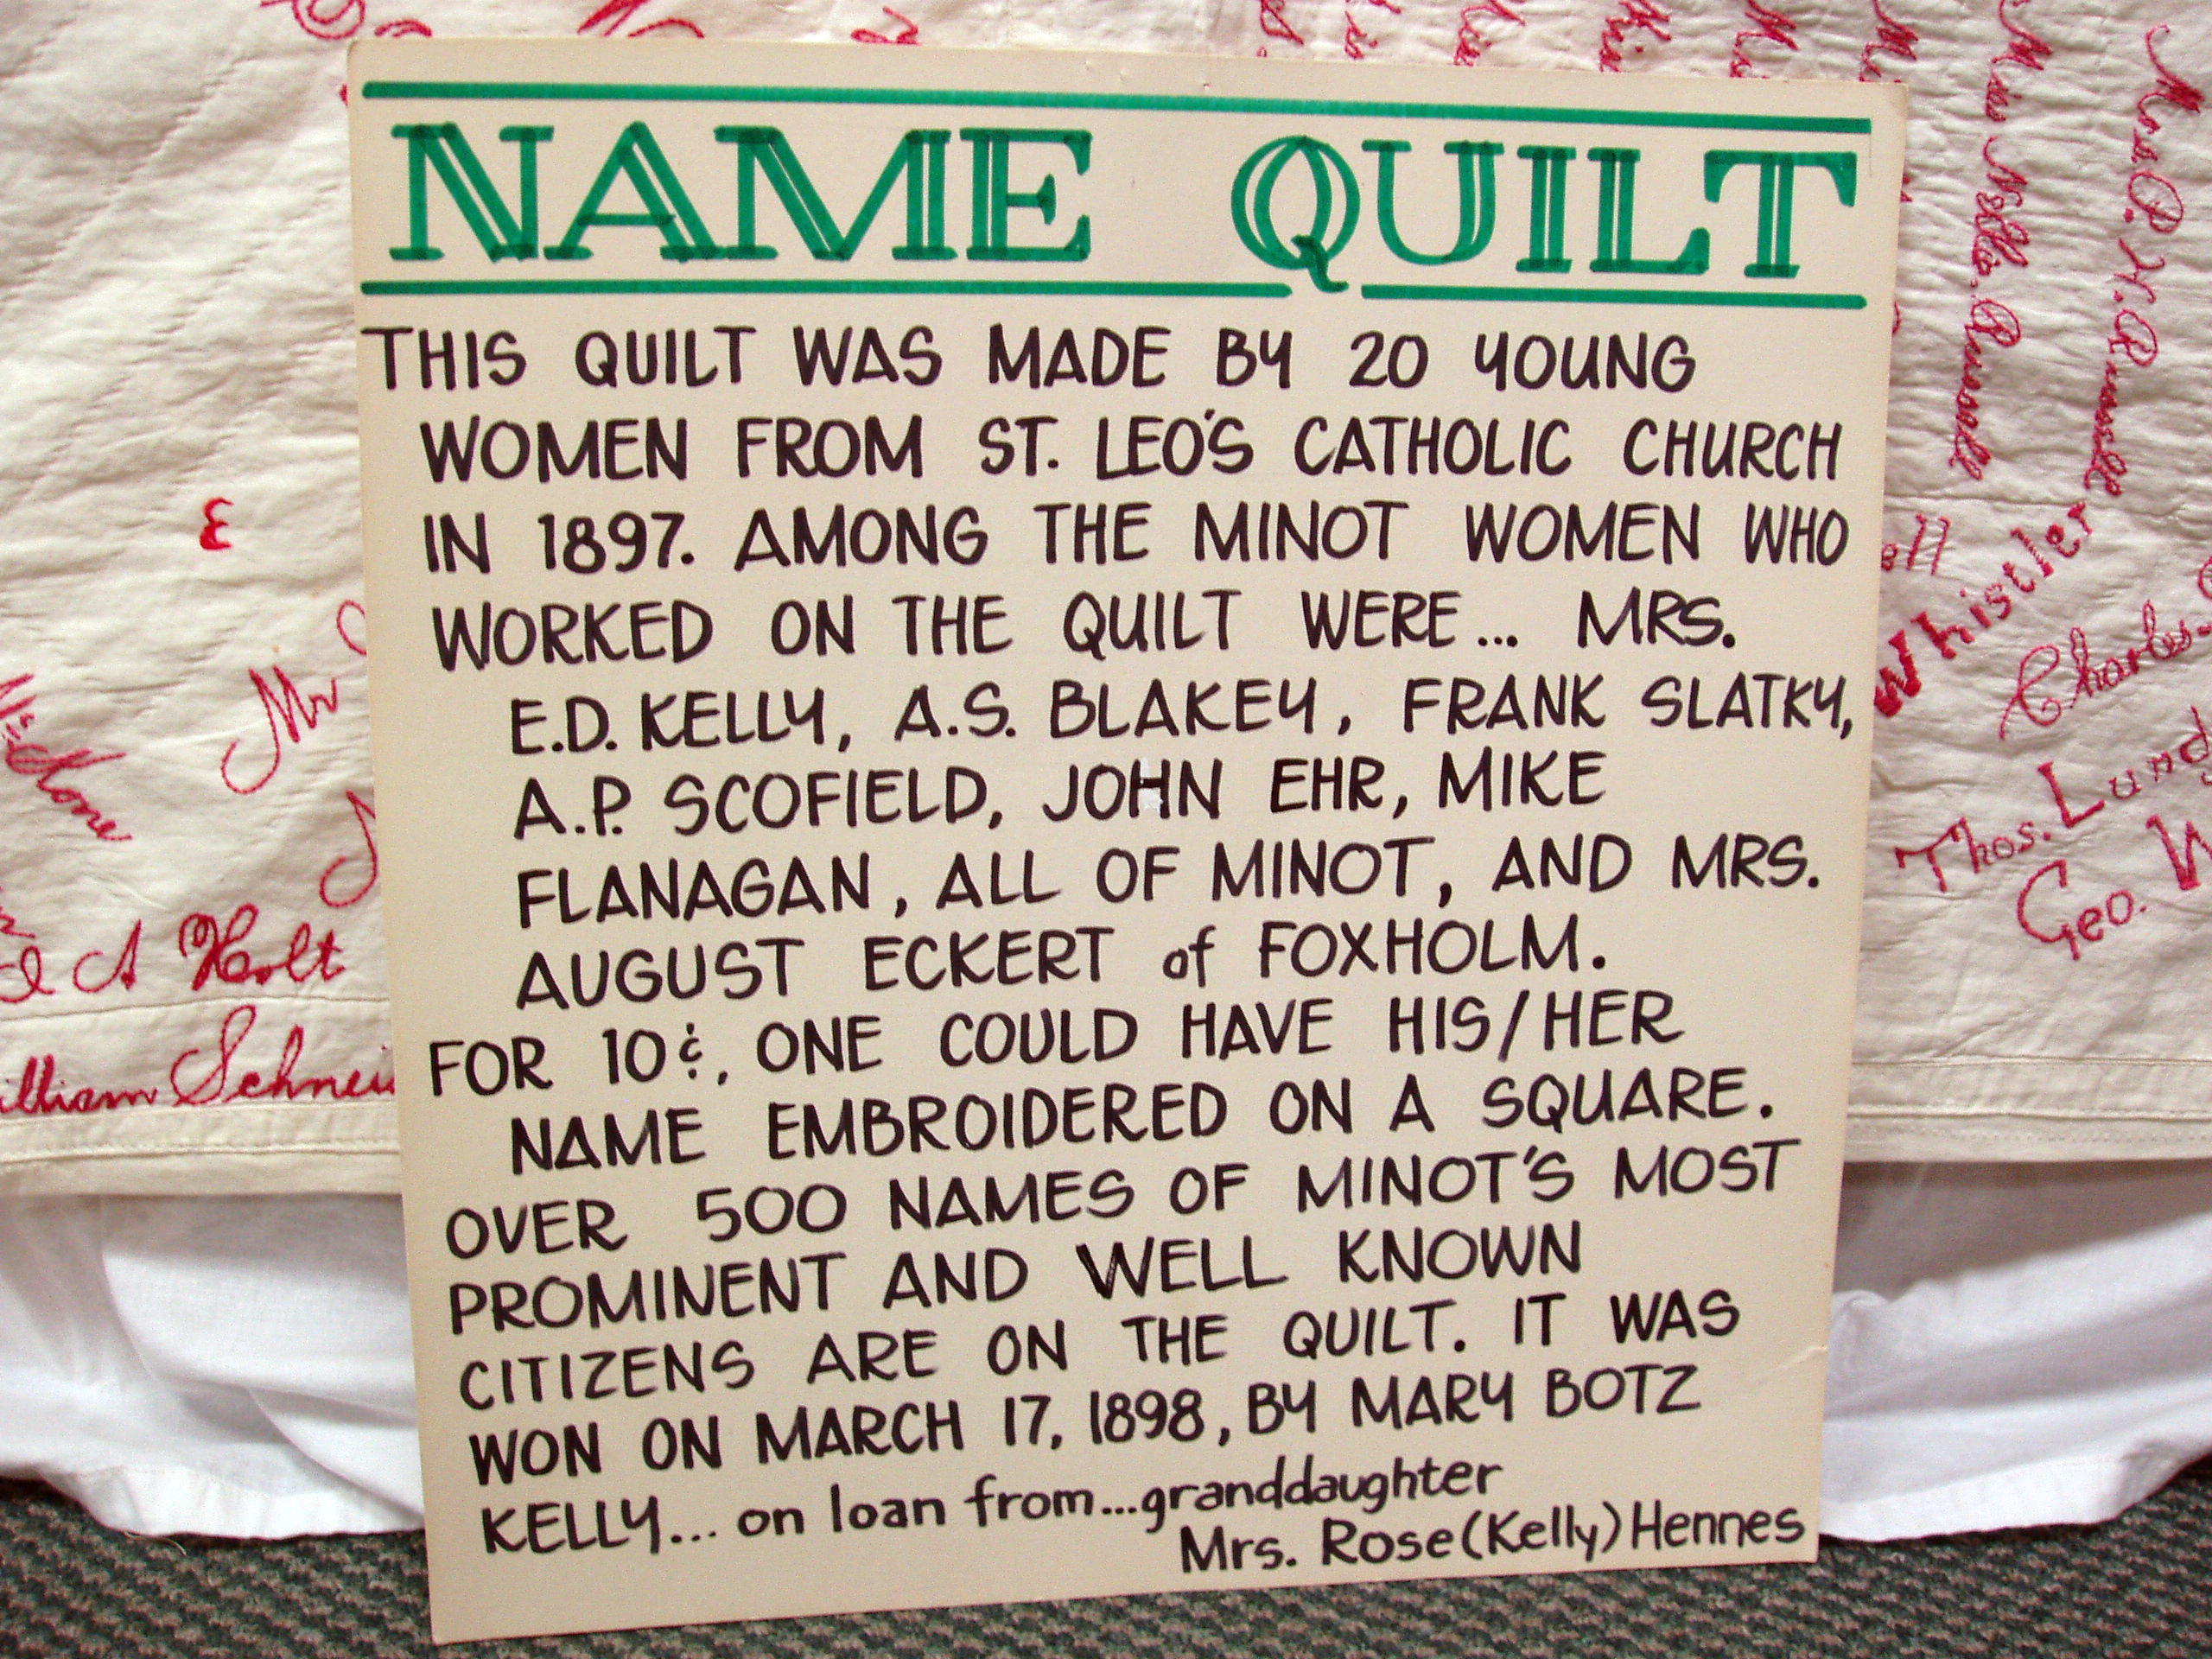 NAME QUILT
THIS QUILT WAS MADE BY 20 YOUNG
WOMEN FROM ST. LEO'S CATHOLIC CHURCH
IN 1897. AMONG THE MINOT WOMEN WHO
WORKED ON THE QUILT WERE... MRS.
E.D. KELLY, A.S. BLAKEY, FRANK SLATKY,
A.P. SCOFIELD, JOHN EHR, MIKE
FLANAGAN, ALL OF MINOT, AND MRS.
AUGUST ECKERT of FOXHOLM.
FOR 10¢, ONE COULD HAVE HIS/HER
NAME EMBROIDERED ON A SQUARE.
OVER 500 NAMES OF MINOT'S MOST
PROMINENT AND WELL KNOWN
CITIZENS ARE ON THE QUILT. IT WAS
WON ON MARCH 17, 1898, BY MARY BOTZ
KELLY... on loan from...granddaughter
Mrs. Rose (Kelly) Hennes
Mr
A Holt
Mrs. P. H. Russell
Whistler
Charles
Thos. Lund
Geo. W